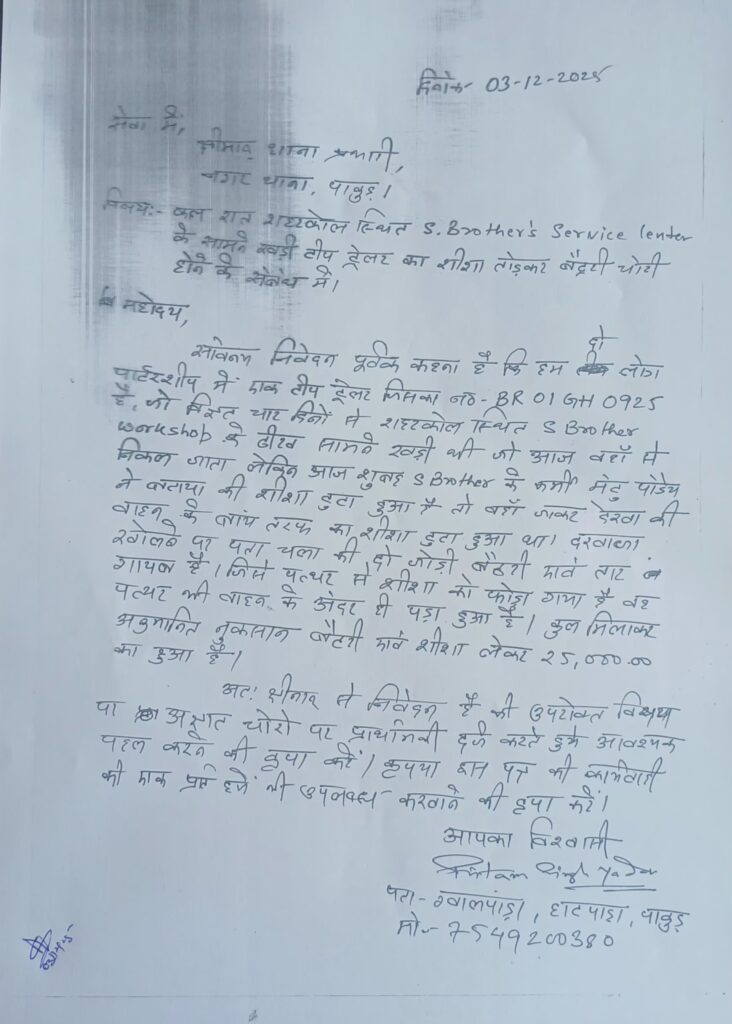 दिनांक- 03-12-2025
सेवा में,
श्रीमान् थाना प्रभारी,
नगर थाना, पाकुड़।
विषय:- कल रात शहरकोल स्थित S. Brother's Service Center
के सामने खड़ी टीप ट्रेलर का शीशा तोड़कर बैट्री चोरी
होने के संबंध में।
महोदय,
सविनय निवेदन पूर्वक कहना है कि हम दो लोग
पार्टरशीप में एक टीप ट्रेलर जिसका नं०- BR 01 GH 0925
है, जो विगत चार दिनों से शहरकोल स्थित S Brother
workshop के ठीक सामने खड़ी थी जो आज वहाँ से
निकल जाता लेकिन आज शुबह S Brother के कर्मी मंटु पांडेय
ने बताया की शीशा टुटा हुआ है तो वहाँ जाकर देखा की
वाहन के बांए तरफ का शीशा टुटा हुआ था। दरवाजा
खोलने पर पता चला की दो जोड़ी बैटरी एवं तार
गायब है। जिसे पत्थर से शीशा को फोड़ा गया है वह
पत्थर भी वाहन के अंदर ही पड़ा हुआ है। कुल मिलाकर
अनुमानित नुकसान बैटरी एवं शीशा लेकर 25,000.00
का हुआ है।
अतः श्रीमान् से निवेदन है की उपरोक्त विषय
पर अज्ञात चोरो पर प्राथमिकी दर्ज करते हुये आवश्यक
पहल करने की कृपा करें। कृपया इस पत्र की कार्यवाही
की एक प्रति हमें भी उपलब्ध करवाने की कृपा करें।
आपका विश्वासी
Singh Yadav
पता- ग्वालपाड़ा, हाटपाड़ा, पाकुड़
मो०- 7549200380